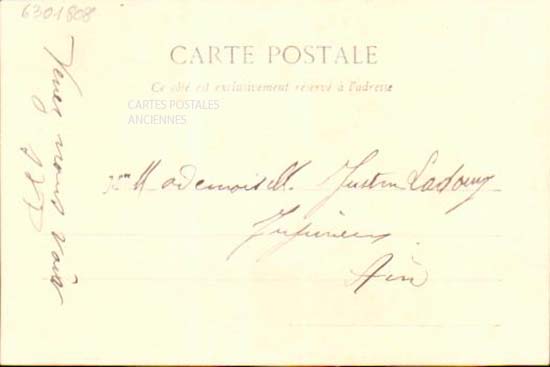 6301808
CARTE POSTALE
Ce côté est exclusivement réservé à l'adresse
CARTES POSTALES
ANCIENNES
Mademoiselle Justin
Ain
Venez nous voir